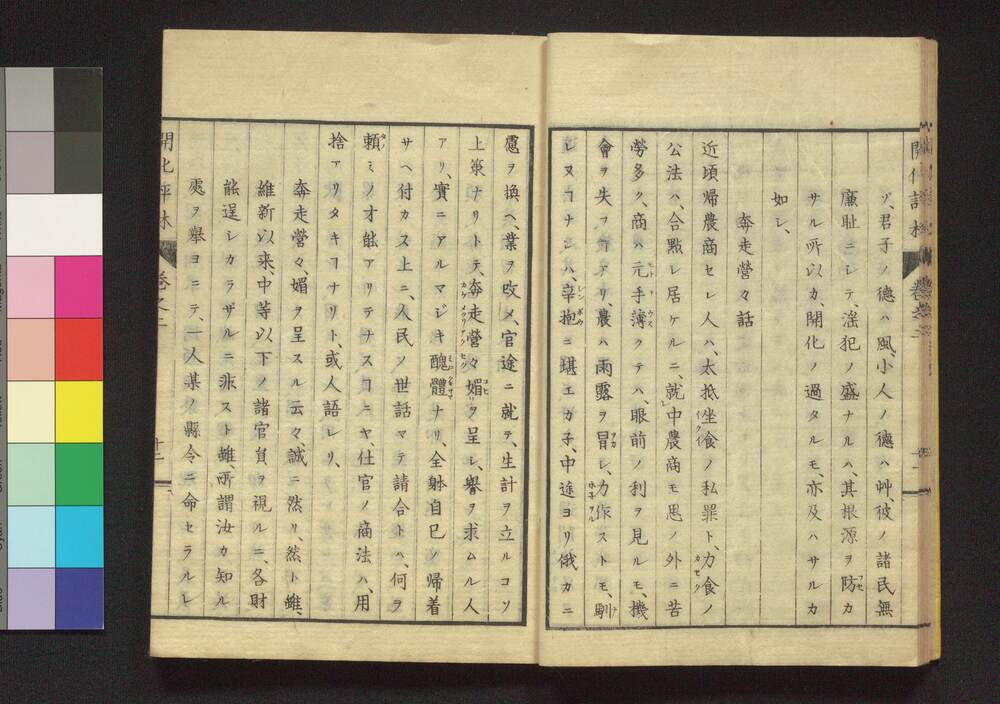 ヅ、君子ノ德ハ風、小人ノ德ハ艸、彼ノ諸民無
廉耻ニシテ、淫犯ノ盛ナルハ、其根源ヲ防カ
サル所以カ、開化ノ過タルモ、亦及ハサルカ
如シ、
奔走營々話
近頃帰農商セシ人ハ、大抵坐食ノ私罪ト、力食ノ
公法ハ、合點シ居ケルニ、就中農商モ思ノ外ニ苦
勞多ク、商ハ元手薄クテハ、眼前ノ利ヲ見ルモ、機
會ヲ失フヿアリ、農ハ雨露ヲ冒シ、力作ストモ、馴
レヌヿナレハ、辛抱ニ堪エカ子、中途ヨリ俄カニ
慮ヲ換ヘ、業ヲ改メ、官途ニ就テ、生計ヲ立ルコソ
上策ナリトテ、奔走營々媚ヲ呈シ、譽ヲ求ムル人
アリ、實ニアルマジキ醜體ナリ、全躰自己ノ帰着
サヘ付カヌ上ニ、人民ノ世話マテ請合トハ、何ヲ
頼ミノ才能アリテナスヿニヤ、仕官ノ商法ハ、用
捨アリタキヿナリト、或人語レリ、
奔走營々、媚ヲ呈スル云々、誠ニ然リ、然ト雖、
維新以来、中等以下ノ諸官員ヲ視ルニ、各財
能逞シカラザルニ非スト雖、所謂汝カ知ル
處ヲ舉ヨニテ、一人某ノ縣令ニ命セラルレ
開化評林
卷之二